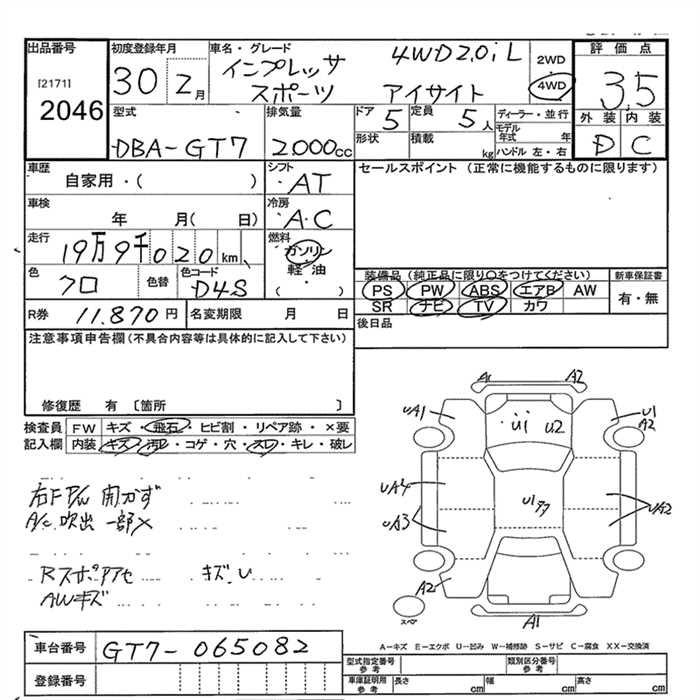 出品番号
[2171]
2046
初度登録年月
30 2月
車名・グレード
インプレッサ 4WD2.0iL
スポーツ アイサイト
2WD
4WD
評価点
3.5
外装 内装
D C
型式
DBA-GT7
排気量
2.000cc
ドア 5
定員 5人
形状
積載 kg
ディーラー・並行
モデル年式 年
ハンドル 左・右
車歴
自家用・( )
シフト
AT
セールスポイント (正常に機能するものに限ります)
車検
年 月( 日)
冷房
A・C
走行
19万9千020km
燃料
ガソリン
軽油
( )
色
クロ
色替
色コード
D4S
装備品 (純正品に限り○をつけてください)
PS PW ABS エアB AW
SR ナビ TV カワ
新車保証書
有・無
R券 11.870円
名変期限 月 日
後日品
注意事項申告欄(不具合内容等は具体的に記入して下さい)
修復歴 有 〔箇所 〕
検査員 FW キズ・飛石・ヒビ割・リペア跡・×要
記入欄 内装 キズ・汚レ・コゲ・穴・スレ・キレ・破レ
右F P/w 開かず
A/c 吹出 一部×
Rスポ アクセ キズ、U
AWキズ
A1 A2
UA1 U1 U2 U1 A2
UA4
UA3
UA2
A2
スペア
A1
A-キズ E-エクボ U-凹み W-補修跡 S-サビ C-腐食 XX-交換済
車台番号 GT7-065082
登録番号
型式指定番号 参考
類別区分番号 参考
車庫証明用 参考 長さ cm 幅 cm 高さ cm